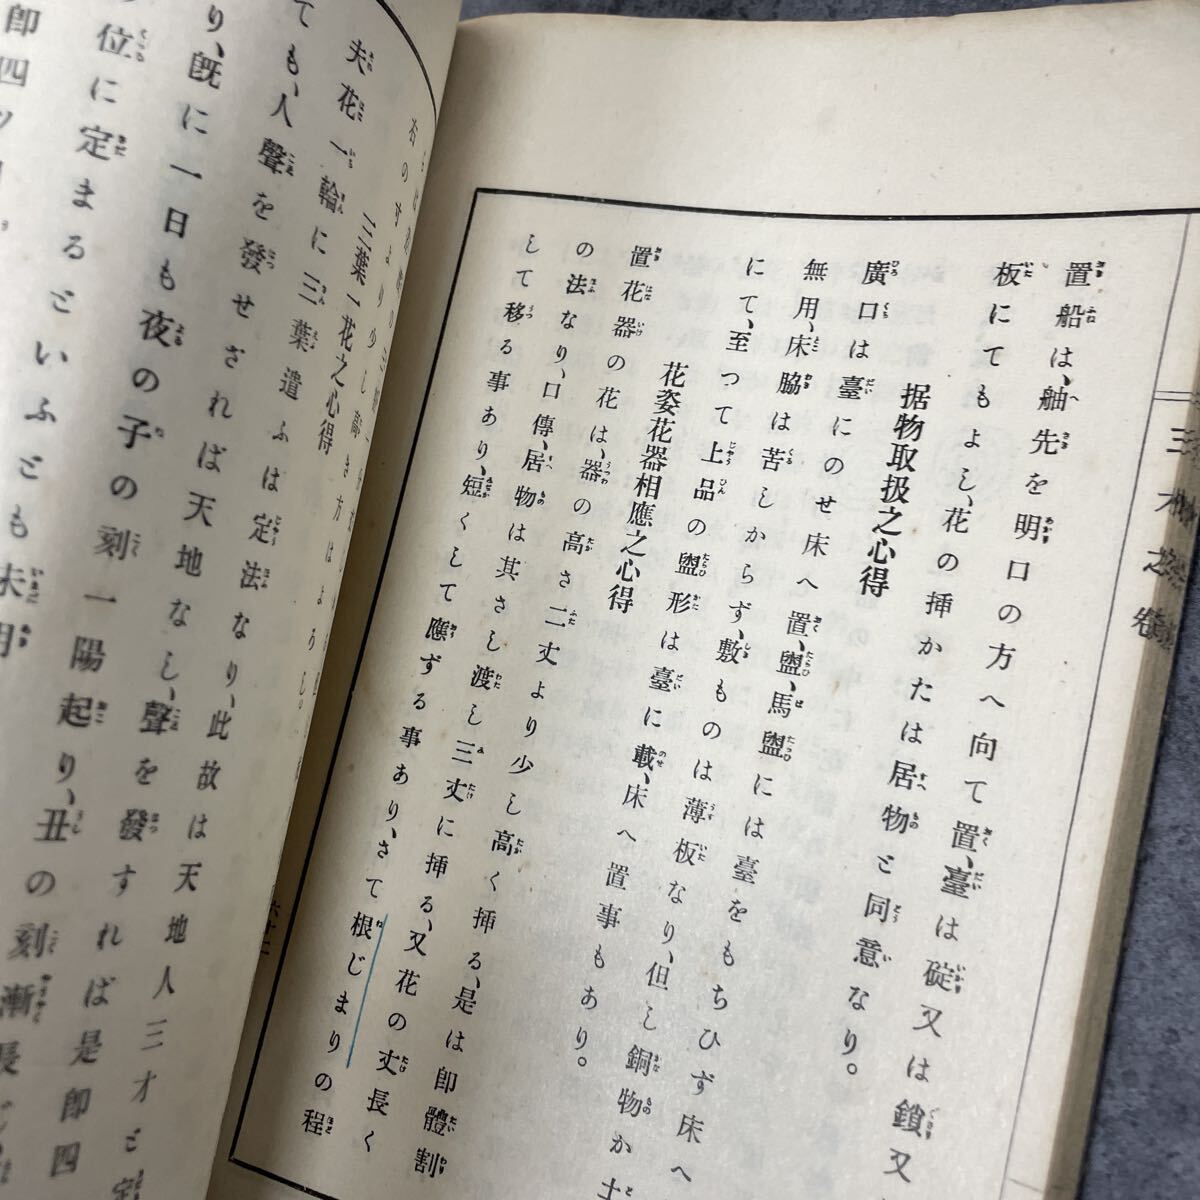 置船は、舳先を明口の方へ向て置、臺は碇又は鎖又
板にてもよし、花の挿かたは居物と同意なり。
据物取扱之心得
廣口は臺にのせ床へ置、盥、馬盥には臺をもちひず床へ
無用、床脇は苦しからず、敷ものは薄板なり、但し銅物か土
にて、至つて上品の盥形は臺に載、床へ置事もあり。
花姿花器相應之心得
置花器の花は、器の高さ二丈より少し高く挿る、是は卽體割
の法なり、口傳、居物は其さし渡し三丈に挿る、又花の丈長く
して移る事あり、短くして應ずる事あり、さて根じまりの程
三才之巻
右のすより少し高き方はよろし。
三葉一花之心得
夫花一輪に三葉遣ふは定法なり、此故は天地人三才と定
ても、人聲を發せざれば天地なし、聲を發すれば是卽四
り、旣に一日も夜の子の刻一陽起り、丑の刻漸長じ
位に定まるといふとも未明
卽四ツ
六十二